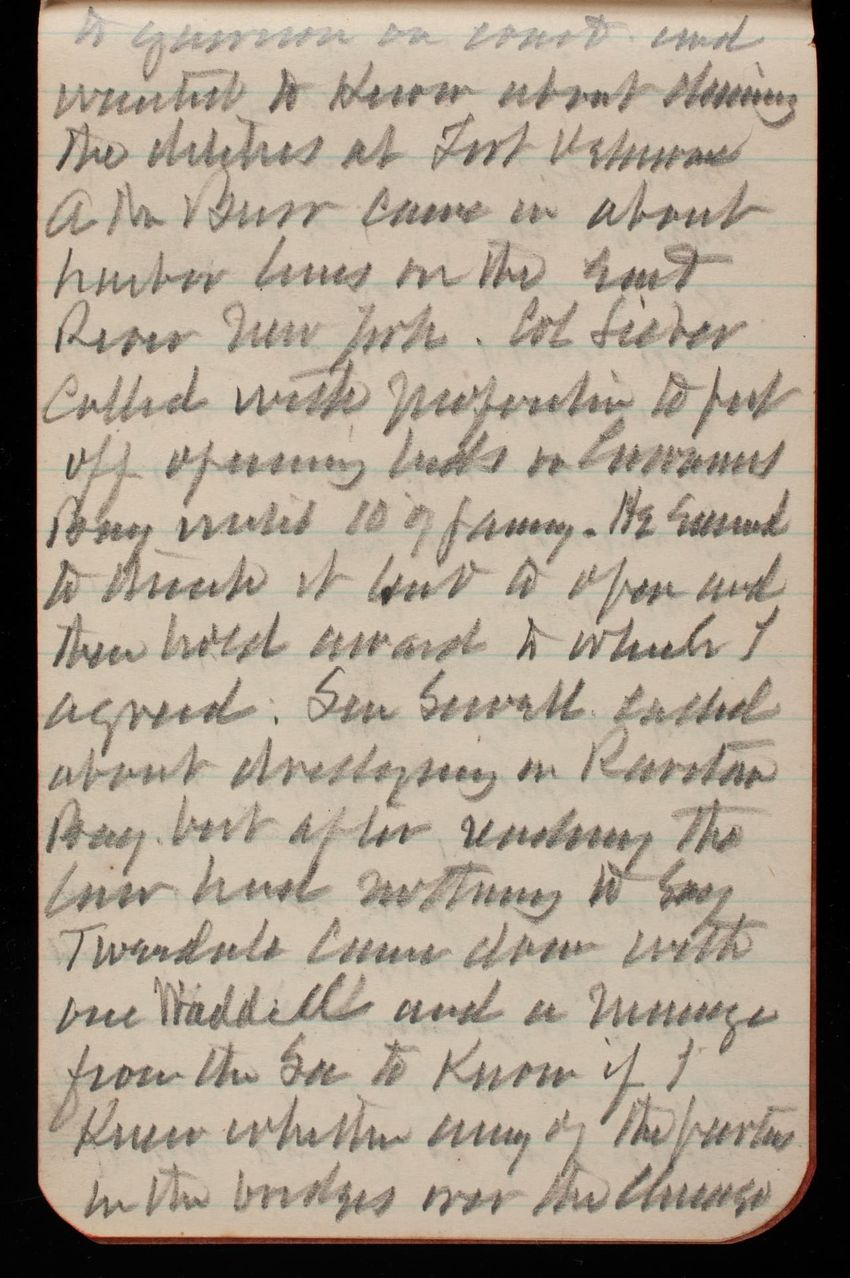 to garrison on coast and
wanted to know about closing
the ditches at Fort Delaware
A Mr Burr came in about
harbor lines on the East
River New York. Col Sieber
Called with proposition to put
off opening bids on
Bay until 10 of Jany. He seemed
to think it best to open and
then hold award to which I
agreed. Gen Sewell called
about dredging in Raritan
Bay but after reading the
law had nothing to say
Tweedale came down with
one Waddell and a message
from the Sec to Know if I
Knew whether any of the parties
in the bridges over the Chicago